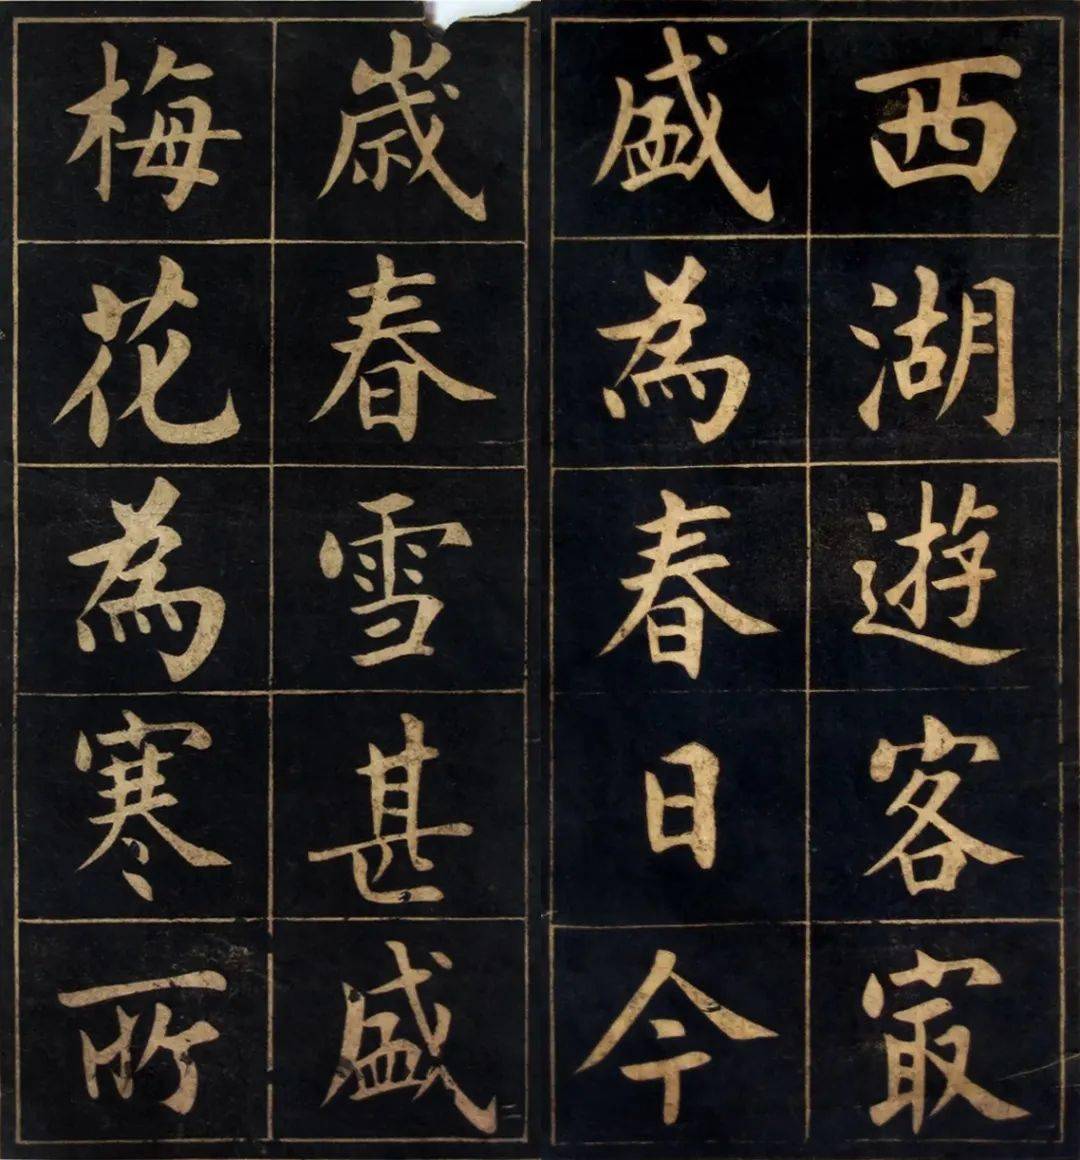 西湖遊客㝡
盛為春日今
嵗春雪甚盛
梅花為寒所